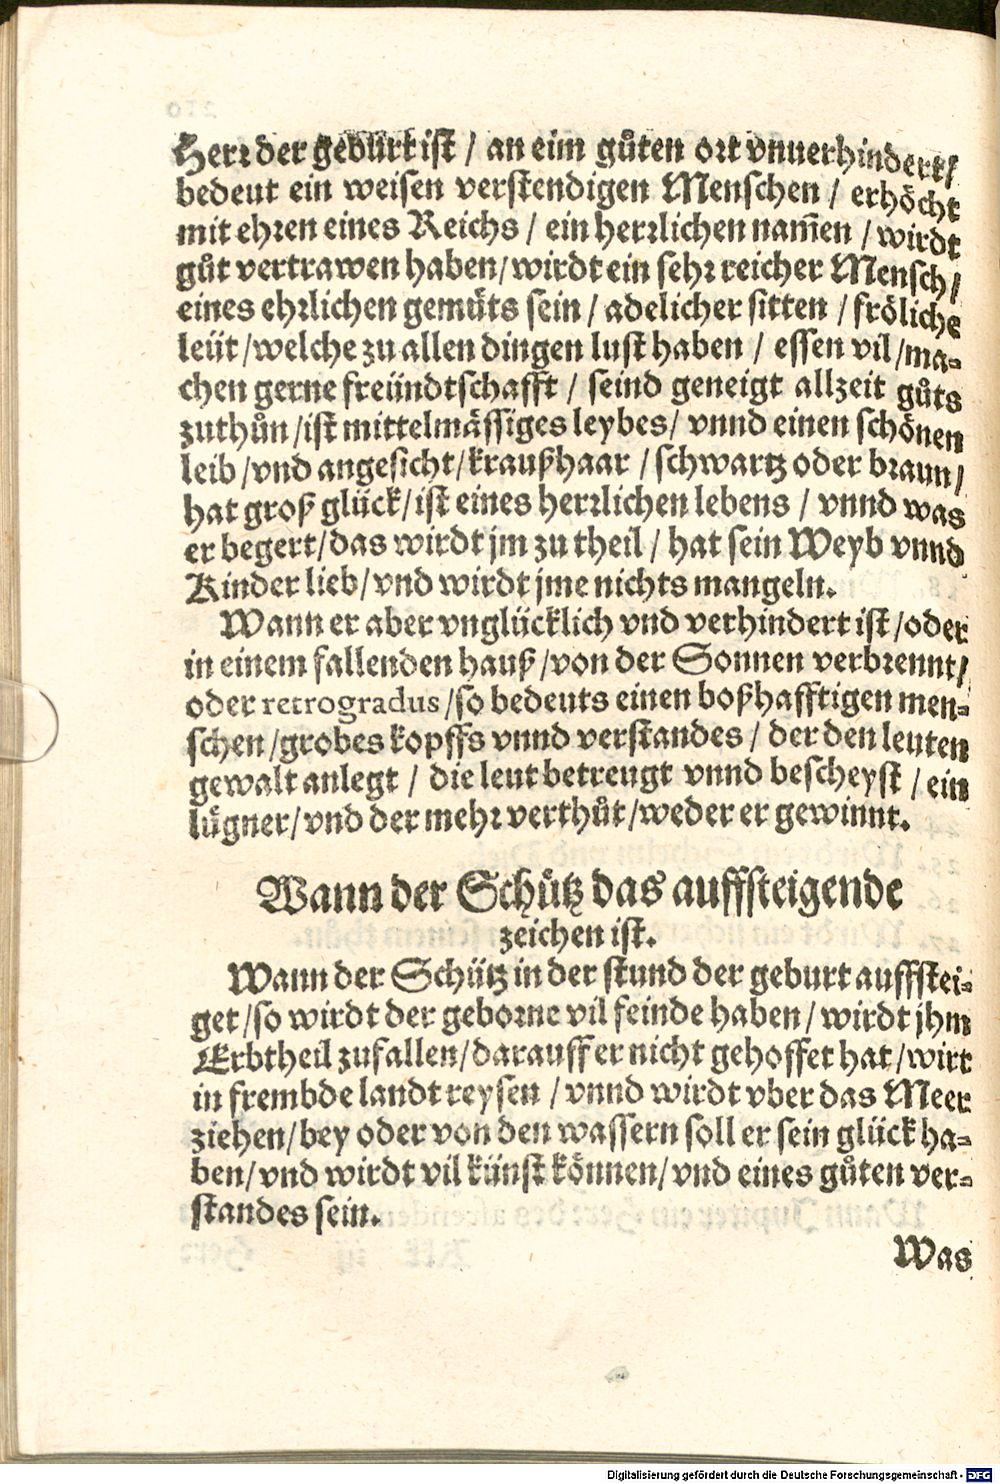 Herr der gebürt ist / an eim gůten ort vnuerhindert/
bedeut ein weisen verstendigen Menschen / erhöcht
mit ehren eines Reichs / ein herrlichen nam̃en / wirdt
gůt vertrawen haben/wirdt ein sehr reicher Mensch/
eines ehrlichen gemůts sein / adelicher sitten / fröliche
leüt/welche zu allen dingen lust haben / essen vil/ma-
chen gerne freündtschafft / seind geneigt allzeit gůts
zuthůn/ist mittelmässiges leybes/ vnnd einen schönen
leib/vnd angesicht/kraußhaar / schwartz oder braun/
hat groß glück/ist eines herrlichen lebens / vnnd was
er begert/das wirdt jm zu theil / hat sein Weyb vnnd
Kinder lieb/vnd wirdt jme nichts mangeln.
Wann er aber vnglücklich vnd verhindert ist/oder
in einem fallenden hauß/von der Sonnen verbrennt/
oder retrogradus/so bedeuts einen boßhafftigen men-
schen/grobes kopffs vnnd verstandes / der den leuten
gewalt anlegt / die leut betreugt vnnd bescheyst / ein
lügner/vnd der mehr verthůt/weder er gewinnt.
Wann der Schütz das auffsteigende
zeichen ist.
Wann der Schütz in der stund der geburt auffstei-
get/so wirdt der geborne vil feinde haben/wirdt jhm
Erbtheil zufallen/darauff er nicht gehoffet hat/wirt
in frembde landt reysen / vnnd wirdt vber das Meer
ziehen/bey oder von den wassern soll er sein glück ha-
ben/vnd wirdt vil künst können/vnd eines gůten ver-
standes sein.
Was
Digitalisierung gefördert durch die Deutsche Forschungsgemeinschaft - DFG